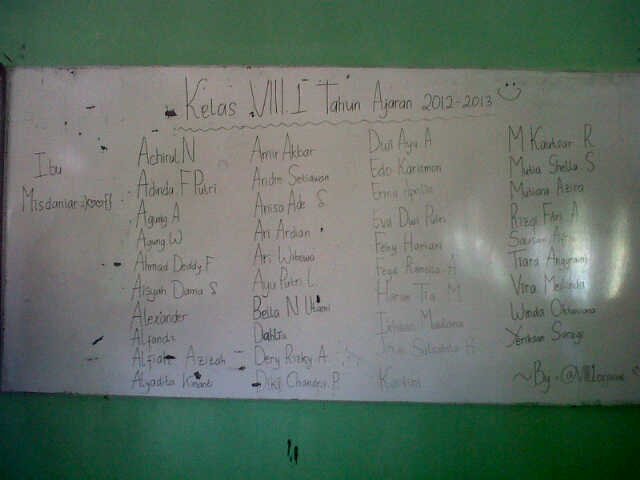 Kelas VIII.1 Tahun Ajaran 2012-2013
Ibu
Misdaniar
Achirul N
Adinda F Putri
Agung A
Agung W
Ahmad Deddy F
Aisyah Dama S
Alexander
Alfandi
Alfiah Azizah
Alyadita Kinanti
Amir Akbar
Andre Setiawan
Anisa Ade S
Ari Ardian
Ari Wibowo
Ayu Putri L
Bella N Utami
Dahlia
Dery Rizky A
Dikji Chandra P.
Dwi Ayu A
Edo Karisman
Erina Aprilia
Eva Dwi Putri
Feny Hariani
Ramosa A
Tia M
Ikhsan Maulana
Salsabila
Kartini
M Kautsar R
Mutia Shella S
Mutiara Azira
Rizqi Fitri A
Tiara Anggraini
Vira Melinda
Winda Oktaviana
Yeriksan Saragi
~By. @VIII.1